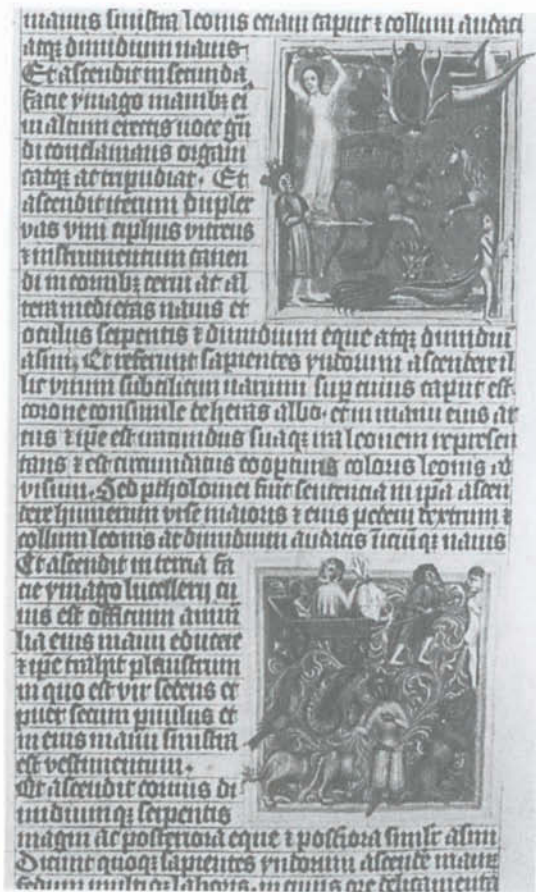 manus sinistra leonis etiam caput ⁊ collum audacis
atqꝫ dimidium nauis
Et ascendit in secunda
facie ymago manibꝫ ei
in altum erectis uoce
di conclamans organi
catqꝫ ac tripudiat. Et
ascendit iterum duplex
vas vini ciphus vitreus
⁊ instrumentum canen
di in cornibꝫ cerui ac al
tera medietas nauis et
oculus serpentis ⁊ dimidium eque atqꝫ dimidiū
asini. Et referunt sapientes yndorum ascendere il
lic virum subtilium narium sup cuius caput est
corone consimile de heras albo. et in manu eius ar
cus ⁊ ip̄e est suaqꝫ ira leonem represen
tans ⁊ est circumdatus coloris leonis ad
visum. Sed ptholomei fuit sentencia in ip̄a ascen
dere humerum vrse maioris ⁊ eius pedem dextrum ⁊
collum leonis ac dimidium audacis nauis
Et ascendit in tercia fa
cie ymago lucellerii cu
ius est officium anima
lia eius manu educere
⁊ ip̄e trahit plaustrum
in quo est vir sedens et
puer secum puulus et
in eius manu sinistra
est vestimentum.
Et ascendit coruus di
midiumqꝫ serpentis
magni ac posteriora eque ⁊ posteriora asini
Dicunt quoqꝫ sapientes yndorum ascendere
fedum multi laboris. in eius ore